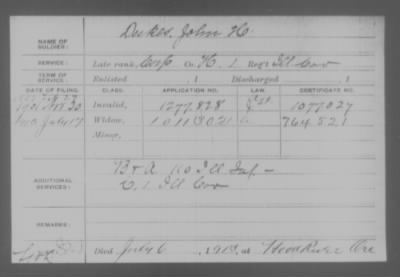 NAME OF SOLDIER: Dukes, John H.
SERVICE: Late rank, Corp Co. H, 1 Reg't Ill Cav
TERM OF SERVICE: Enlisted , 1 Discharged , 1
DATE OF FILING. CLASS. APPLICATION NO. LAW. CERTIFICATE NO.
Invalid, 1277.828 1077027
1913 July 17 Widow, 1011302 764.521
Minor,
ADDITIONAL SERVICES: B + A 10 Ill Inf. –
C. 1. Ill Cav
REMARKS:
Died July 6, 1913, at Hood River Ore